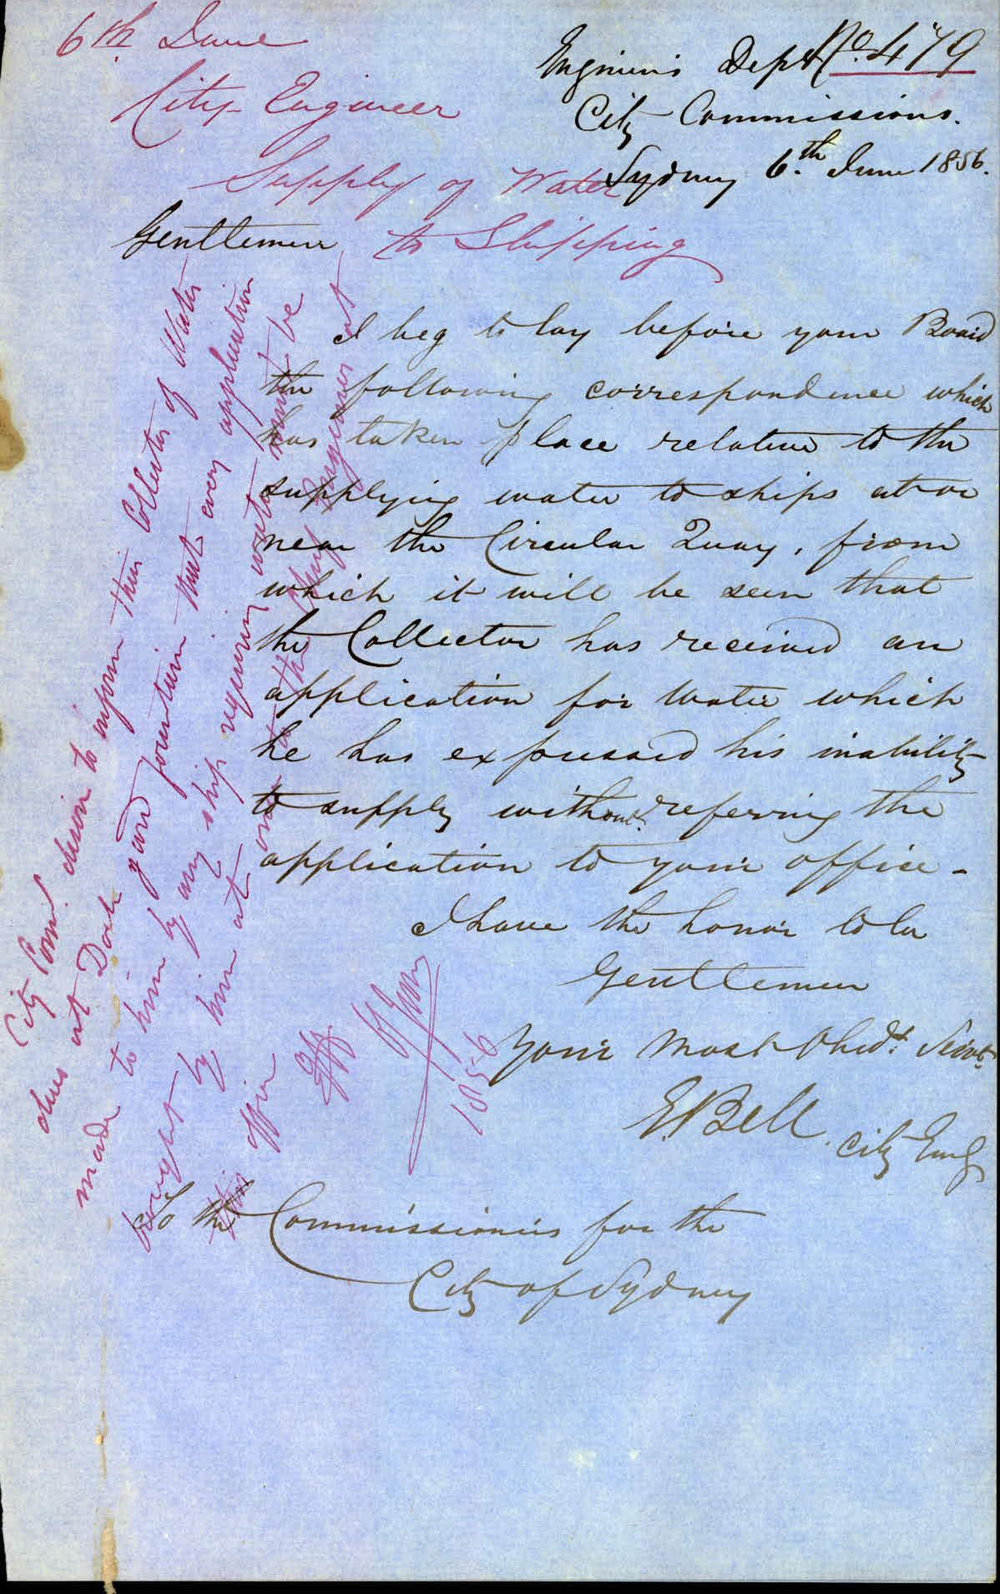 6th June
City Engineer
Supply of Water
to Shipping
No. 479
Engineers Dept
City Commissions.
Sydney 6.th June 1856.
Gentlemen
I beg to lay before your Board
the following correspondence which
has taken place relative to the
supplying water to ships at or
near the Circular Quay, from
which it will be seen that
the Collector has received an
application for Water which
he has expressed his inability
to supply without referring the
application to your office -
I have the honor to be
Gentlemen
Your Most Obedt. Servt.
E. Bell. City Eng
To the Commissioners for the
City of Sydney
City Coms. desire to inform their Collector of Water
dues at Dock yard fountain that every application
made to him by any ship requiring water must be
brought by him at once to the
this office
June
1856